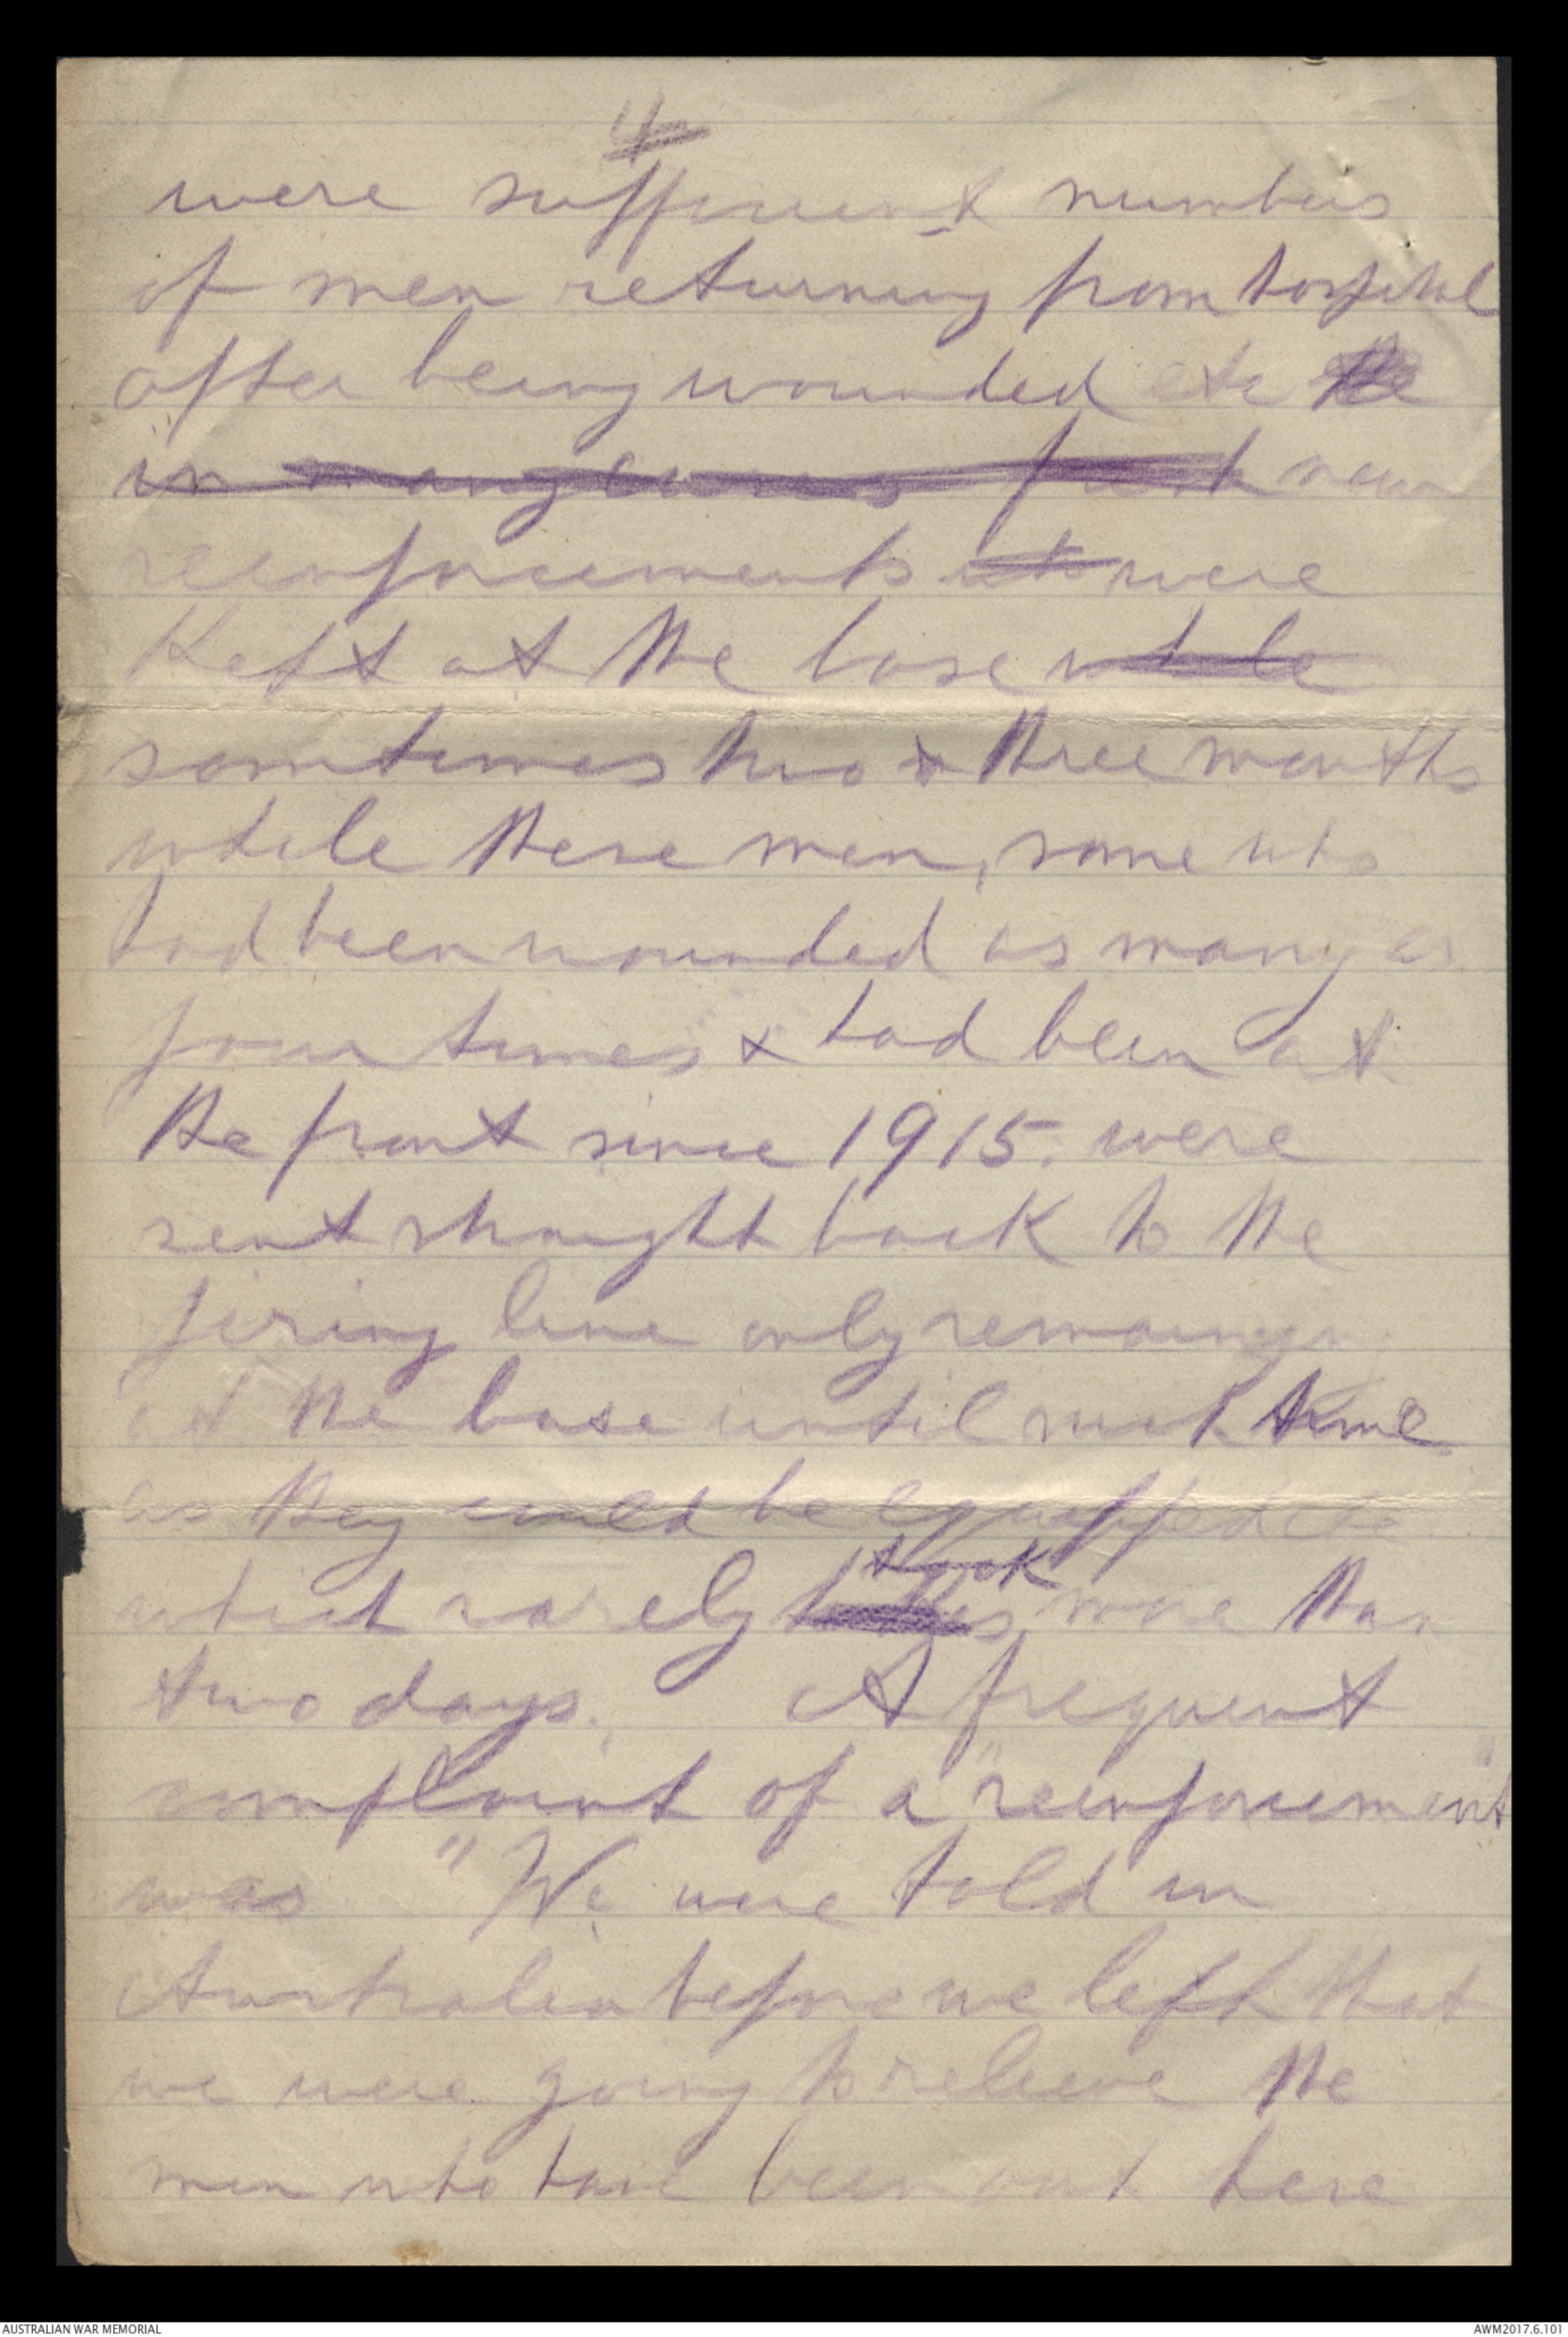 4
were sufficient numbers
of men returning from hospital
after being wounded etc the
in many cases fresh new
reenforcements who were
Kept at the base while
somtimes two & three months
while these men, some who
had been wounded as many as
four times & had been at
the front since 1915. were
sent straight back to the
firing line only remaining
at the base until such time
as they could be equipped etc
took
which rarely more than
two days. A frequent
complaint of a "reenforcement"
was "We were told in
Australia before we left that
we were going to releive the
men who have been out here
AUSTRALIAN WAR MEMORIAL
AWM2017.6.101